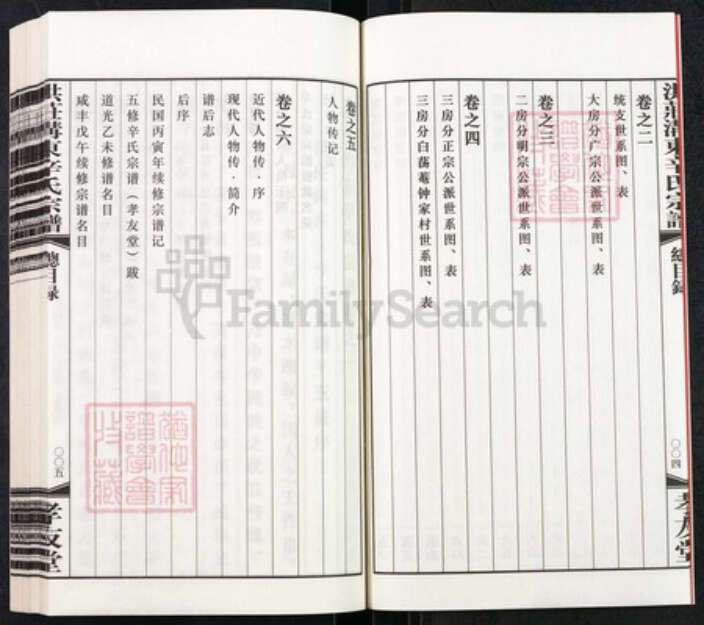 洪莊溝東辛氏宗譜
總目録
〇〇四
孝友堂
卷之二
统支世系图、表
大房分广宗公派世系图、表
卷之三
二房分明宗公派世系图、表
卷之四
三房分正宗公派世系图、表
三房分白荡菴钟家村世系图、表
卷之五
人物传记
卷之六
近代人物传·序
现代人物传·简介
谱后志
后序
民国丙寅年续修宗谱记
五修辛氏宗谱（孝友堂）跋
道光乙未修谱名目
咸丰戊午续修宗谱名目
洪莊溝東辛氏宗譜
總目録
〇〇五
孝友堂
FamilySearch